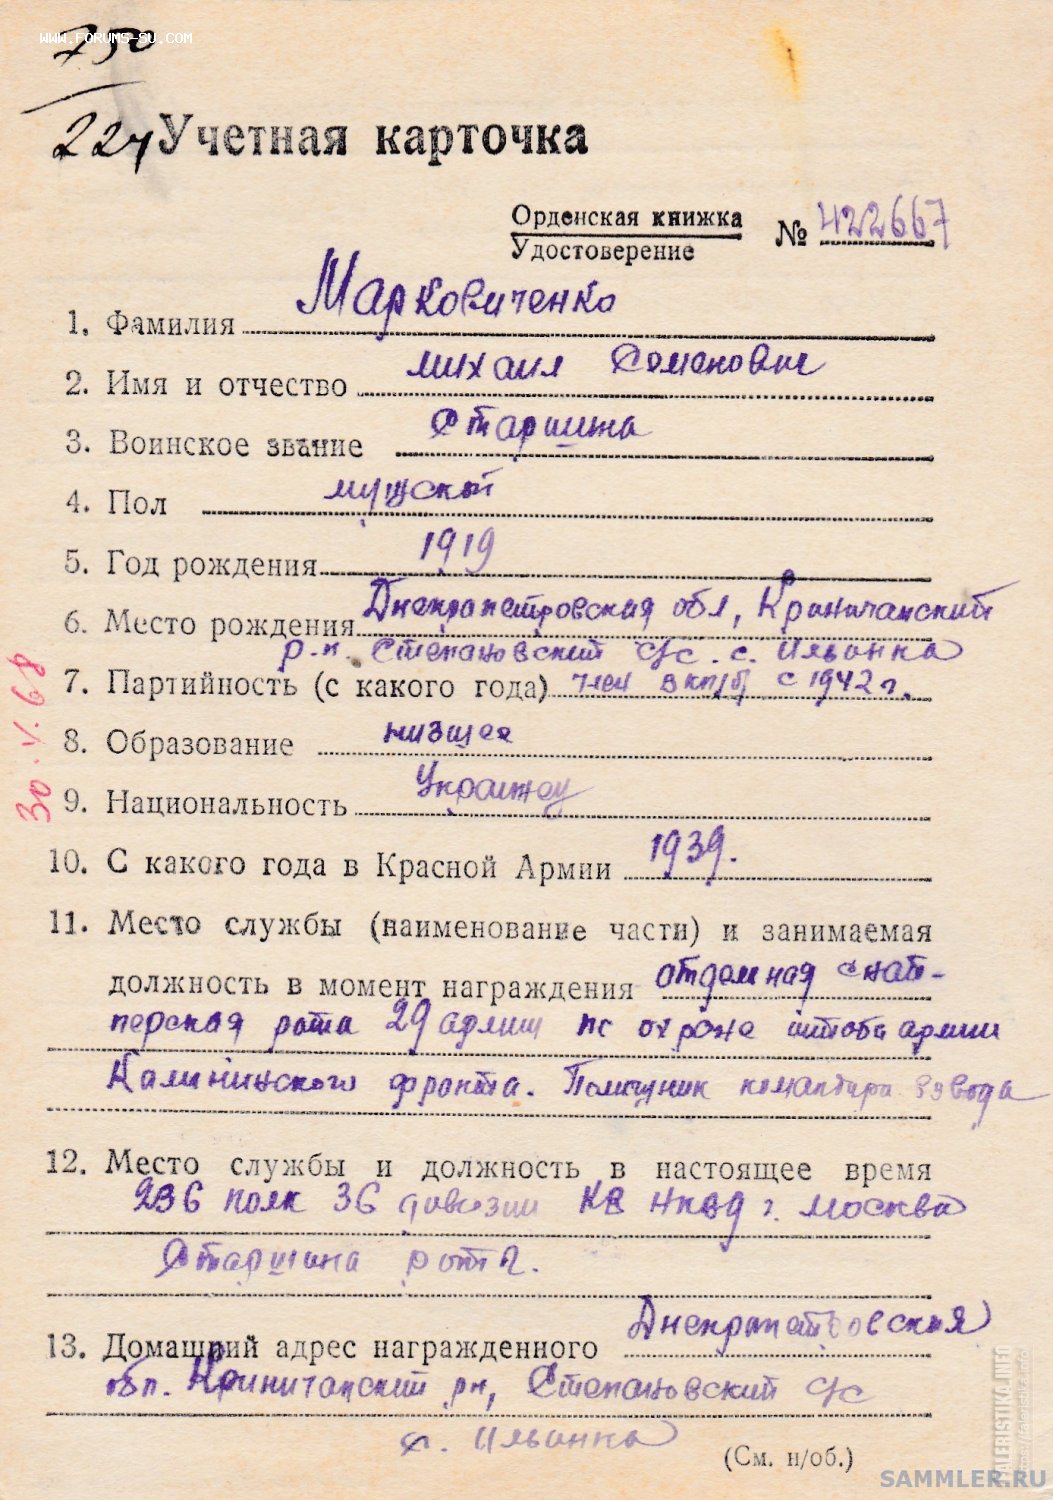 WWW.FORUMS-SU.COM
750
224
Учетная карточка
Орденская книжка
Удостоверение
№ 422667
1. Фамилия Марковиченко
2. Имя и отчество Михаил Семенович
3. Воинское звание Старшина
4. Пол мужской
5. Год рождения 1919
6. Место рождения Днепропетровская обл, Криничанский
р-н. Степановский с/с. с. Ильинка
7. Партийность (с какого года) член вкп/б с 1942 г.
8. Образование низшее
9. Национальность Украинец
30.V.68
10. С какого года в Красной Армии 1939.
11. Место службы (наименование части) и занимаемая
должность в момент награждения отдельная снай-
перская рота 29 армии по охране штаба армии
Калининского фронта. Помощник командира взвода
12. Место службы и должность в настоящее время
236 полк 36 дивизии КВ НКВД г. Москва
Старшина роты.
13. Домашний адрес награжденного Днепропетровская
обл. Криничанский рн, Степановский с/с
с. Ильинка
(См. н/об.)
SAMMLER.RU